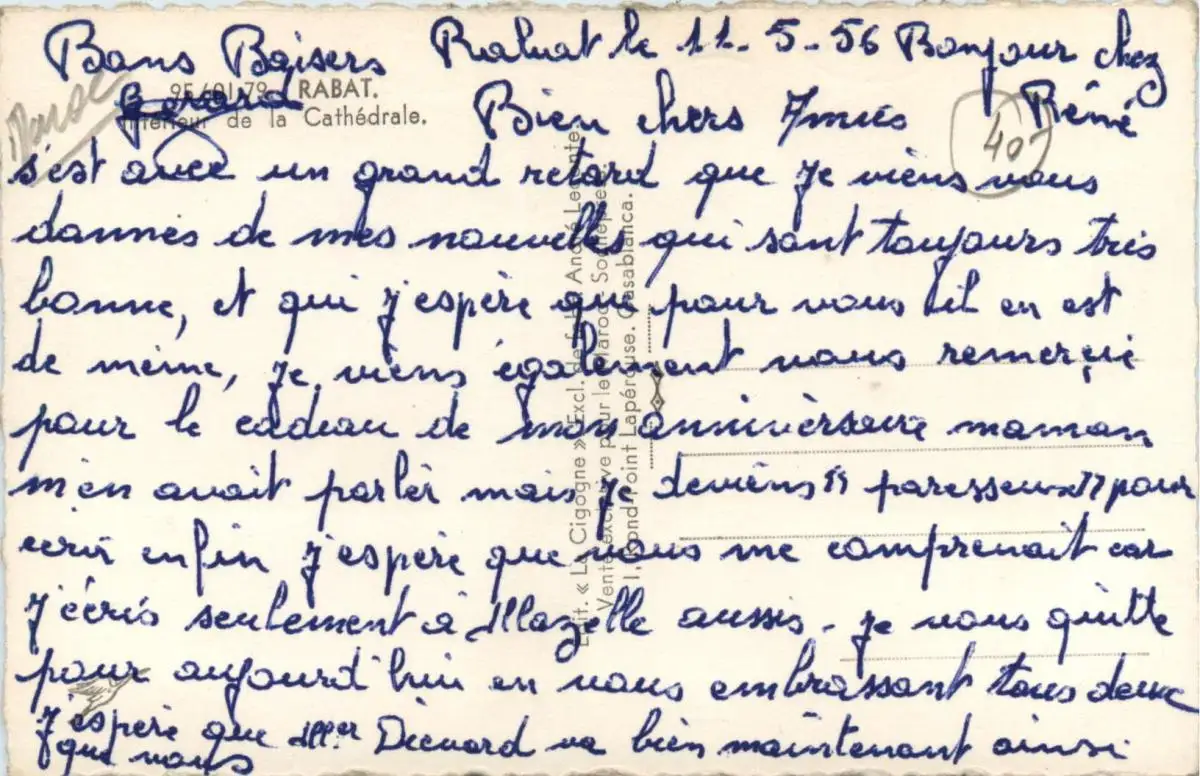 Bons Baisers Rabat le 11-5-56 Bonjour chez
Gerard Bien chers René
95/01/79 RABAT.
Intérieur de la Cathédrale.
40
s'est avec un grand retard que je viens vous
donnés de mes nouvelles qui sont toujours très
bonne, et qui j'espère que pour vous il en est
de même, je viens également vous remerçié
pour le cadeau de mon anniversaire maman
m'en avait parlér mais je deviens "paresseux" pour
écrir enfin j'espère que vous me comprenait car
j'écris seulement à aussis - je vous quitte
pour aujourd'hui en vous embrassant tous deux
j'espère que va bien maintenant ainsi
que vous
Edit. « La Cigogne » Excl.
Vente exclusive pour le Maroc
1, Rond-Point Lapérouse. Casablanca.